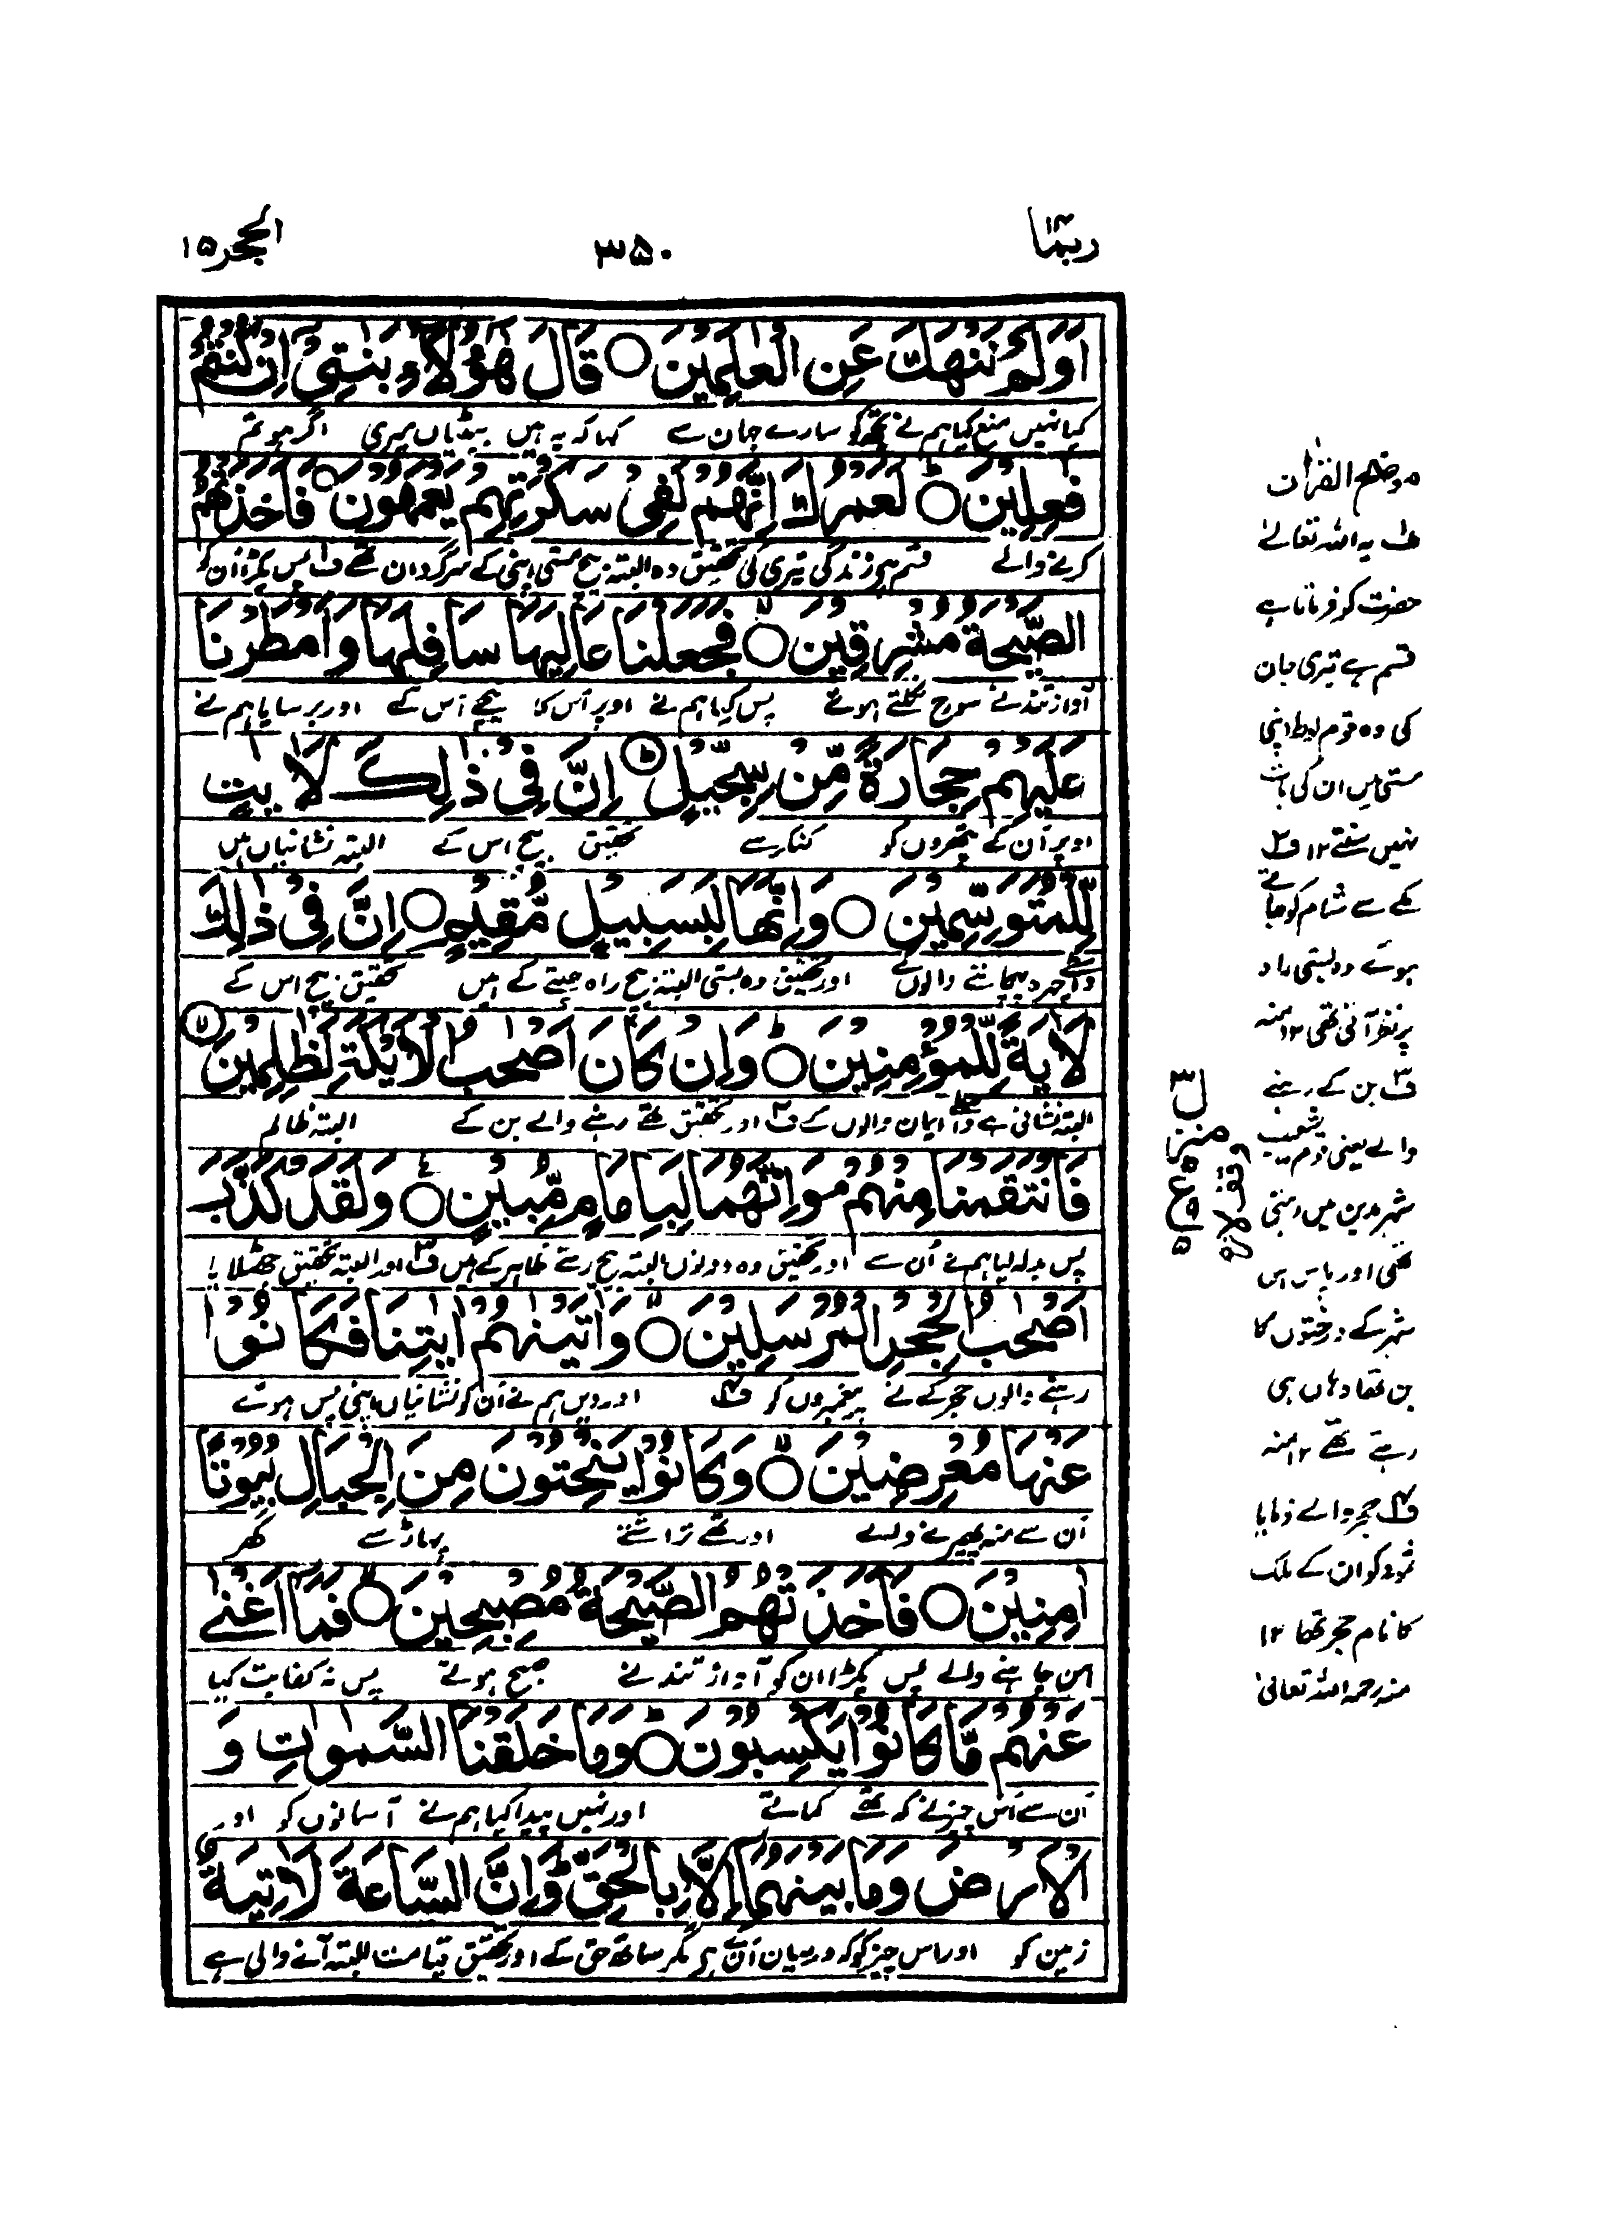 ربما ۱۴
۳۵۰
الحجر ۱۵
اَوَلَمْ نَنْهَكَ عَنِ الْعٰلَمِيْنَ ○ قَالَ هٰٓؤُلَآءِ بَنٰتِيْٓ اِنْ كُنْتُمْ
کیا نہیں منع کیا ہم نے تجھ کو سارے جہان سے کہا کہ یہ ہیں بیٹیاں میری اگر ہو تم
فٰعِلِيْنَ ○ لَعَمْرُكَ اِنَّهُمْ لَفِيْ سَكْرَتِهِمْ يَعْمَهُوْنَ ○ فَاَخَذَتْهُمُ
کرنے والے قسم ہے زندگی تیری کی تحقیق وہ البتہ بیچ مستی اپنی کے سرگرداں تھے ف۱ پس پکڑا ان کو
الصَّيْحَةُ مُشْرِقِيْنَ ○ فَجَعَلْنَا عَالِيَهَا سَافِلَهَا وَاَمْطَرْنَا
آواز تند نے سورج نکلتے ہوئے پس کیا ہم نے اوپر اُس کا نیچے اُس کے اور برسایا ہم نے
عَلَيْهِمْ حِجَارَةً مِّنْ سِجِّيْلٍ ○ اِنَّ فِيْ ذٰلِكَ لَاٰيٰتٍ
اوپر اُن کے پتھروں کو کنکر سے تحقیق بیچ اس کے البتہ نشانیاں ہیں
لِّلْمُتَوَسِّمِيْنَ ○ وَاِنَّهَا لَبِسَبِيْلٍ مُّقِيْمٍ ○ اِنَّ فِيْ ذٰلِكَ
واسطے چہرہ پہچاننے والوں کے اور تحقیق وہ بستی البتہ بیچ راہ جیتے کے ہیں تحقیق بیچ اس کے
لَاٰيَةً لِّلْمُؤْمِنِيْنَ ○ وَاِنْ كَانَ اَصْحٰبُ الْاَيْكَةِ لَظٰلِمِيْنَ ○
البتہ نشانی ہے واسطے ایمان والوں کے ف۲ اور تحقیق تھے رہنے والے بن کے البتہ ظالم
فَانْتَقَمْنَا مِنْهُمْ وَاِنَّهُمَا لَبِاِمَامٍ مُّبِيْنٍ ○ وَلَقَدْ كَذَّبَ
پس بدلہ لیا ہم نے اُن سے اور تحقیق وہ دونوں البتہ بیچ رستے ظاہر کے ہیں ف۳ اور البتہ تحقیق جھٹلایا
اَصْحٰبُ الْحِجْرِ الْمُرْسَلِيْنَ ○ وَاٰتَيْنٰهُمْ اٰيٰتِنَا فَكَانُوْا
رہنے والوں حجر کے نے پیغمبروں کو ف۴ اور دیں ہم نے اُن کو نشانیاں اپنی پس ہوئے
عَنْهَا مُعْرِضِيْنَ ○ وَكَانُوْا يَنْحِتُوْنَ مِنَ الْجِبَالِ بُيُوْتًا
اُن سے منہ پھیرنے والے اور تھے تراشتے پہاڑ سے گھر
اٰمِنِيْنَ ○ فَاَخَذَتْهُمُ الصَّيْحَةُ مُصْبِحِيْنَ ○ فَمَآ اَغْنٰى
امن چاہنے والے پس پکڑا ان کو آواز تند نے صبح ہوتے پس نہ کفایت کیا
عَنْهُمْ مَّا كَانُوْا يَكْسِبُوْنَ ○ وَمَا خَلَقْنَا السَّمٰوٰتِ وَ
اُن سے اُس چیز نے کہ تھے کماتے اور نہیں پیدا کیا ہم نے آسمانوں کو اور
الْاَرْضَ وَمَا بَيْنَهُمَآ اِلَّا بِالْحَقِّ وَاِنَّ السَّاعَةَ لَاٰتِيَةٌ
زمین کو اور اس چیز کو کہ درمیان اُن کے ہے مگر ساتھ حق کے اور تحقیق قیامت البتہ آنے والی ہے
موضح القرآن
ف۱ یہ اللہ تعالیٰ
حضرت کو فرماتا ہے
قسم ہے تیری جان
کی وہ قوم لوط اپنی
مستی میں ان کی بات
نہیں سنتے ۱۲ ف۲
مکے سے شام کو جاتے
ہوئے وہ بستی راہ
پر نظر آتی تھی ۱۲ منہ
ف۳ بن کے رہنے
والے یعنی قوم شعیب
شہر مدین میں رہتی
تھی اور پاس اس
شہر کے درختوں کا
بن تھا وہاں بھی
رہتے تھے ۱۲ منہ
ف۴ حجر والے فرمایا
ثمود کو ان کے ملک
کا نام حجر تھا ۱۲
منہ رحمہ اللہ تعالیٰ
منزل ۳
وقف لازم
ع